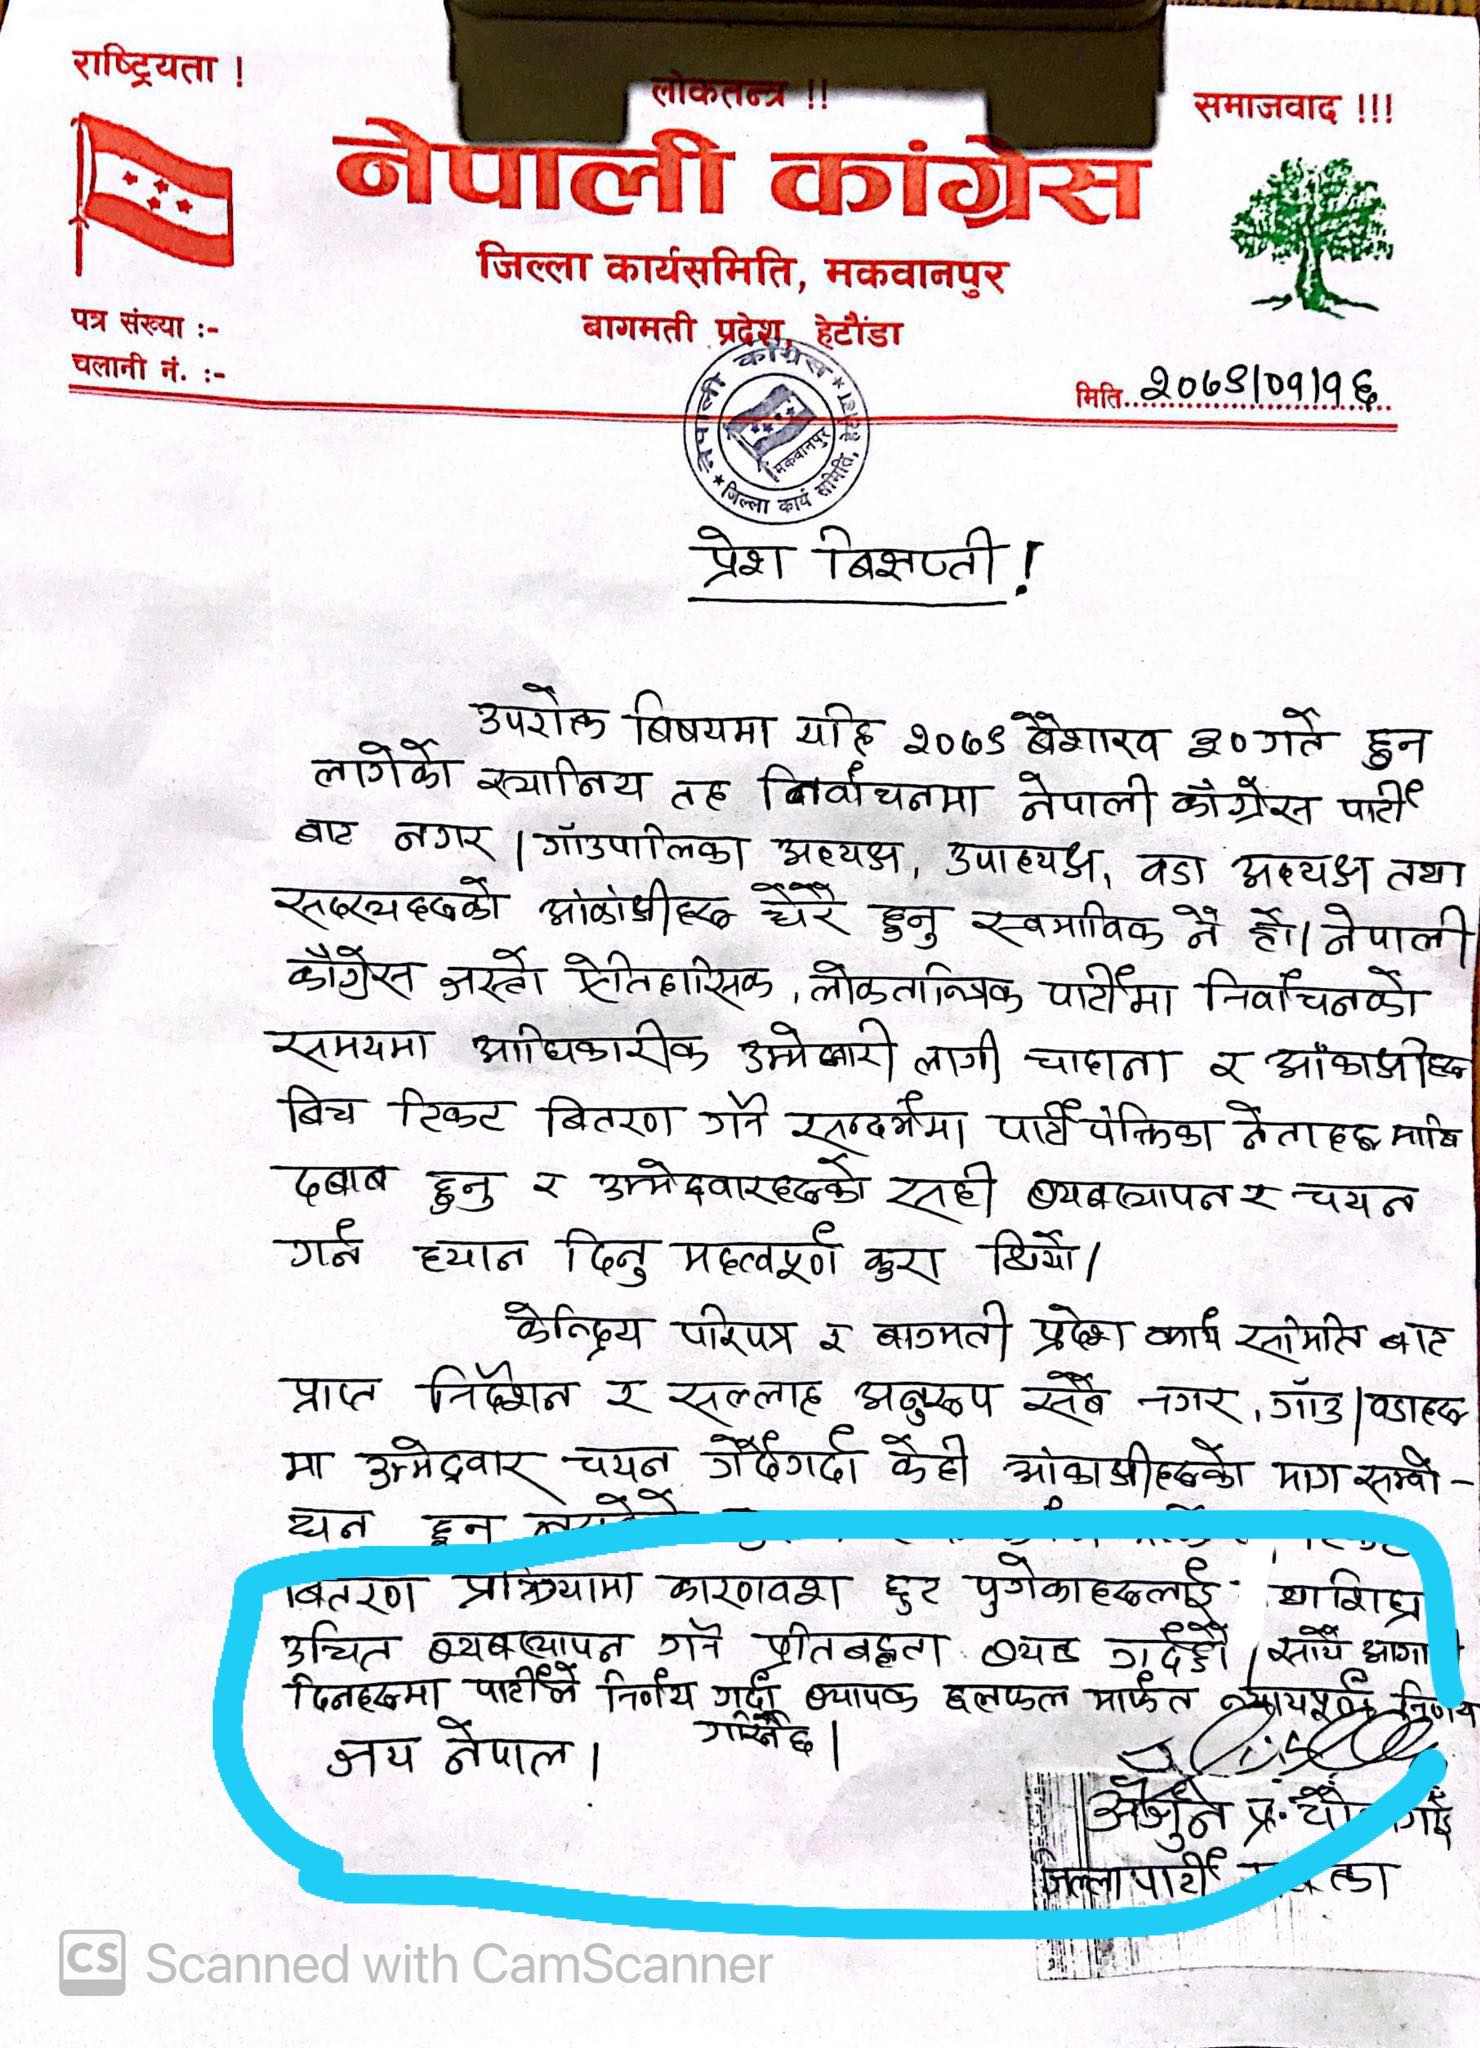 राष्ट्रियता !
लोकतन्त्र !!
समाजवाद !!!
नेपाली कांग्रेस
जिल्ला कार्यसमिति, मकवानपुर
बागमती प्रदेश, हेटौंडा
पत्र संख्या :-
चलानी नं. :-
मिति..२०७९/०१/१६
नेपाली काँग्रेस
मकवानपुर
जिल्ला कार्य समिति,
प्रेश बिज्ञप्ती !
उपरोक्त बिषयमा यहि २०७९ बैशाख ३० गते हुन
लागेको स्थानिय तह निर्वाचनमा नेपाली काँग्रेस पार्टी
बाट नगर / गाँउपालिका अध्यक्ष, उपाध्यक्ष, वडा अध्यक्ष तथा
सदस्यहरुको आंकांक्षीहरु धेरै हुनु स्वभाविक नै हो। नेपाली
काँग्रेस जस्तो ऐतिहासिक, लोकतान्त्रिक पार्टीमा निर्वाचनको
समयमा आधिकारीक उम्मेदवारी लागी चाहाना र आँकाक्षीहरु
बिच टिकट बितरण गर्ने सन्दर्भमा पार्टी पंक्तिका नेताहरु माथि
दबाब हुनु र उम्मेदवारहरुको सही ब्यबस्थापन र चयन
गर्न ध्यान दिनु महत्वपूर्ण कुरा थियो।
केन्द्रिय परिपत्र र बागमती प्रदेश कार्य समिति बाट
प्राप्त निर्देशन र सल्लाह अनुरुप सबै नगर, गाँउ / वडाहरु
मा उम्मेद्ववार चयन गर्दैगर्दा केही आंकाक्षीहरुको माग सम्बो-
धन हुन
बितरण प्रक्रियामा कारणवश छुट पुगेकाहरुलाई यथाशिघ्र
उचित ब्यबस्थापन गर्ने प्रतिबद्धता ब्यक्त गर्दछौं / साथै
दिनहरुमा पार्टीले निर्णय गर्दा ब्यापक छलफल मार्फत न्यायपूर्ण निर्णय
गरिनेछ।
जय नेपाल।
अर्जुन प्र.
जिल्ला पार्टी
CS Scanned with CamScanner